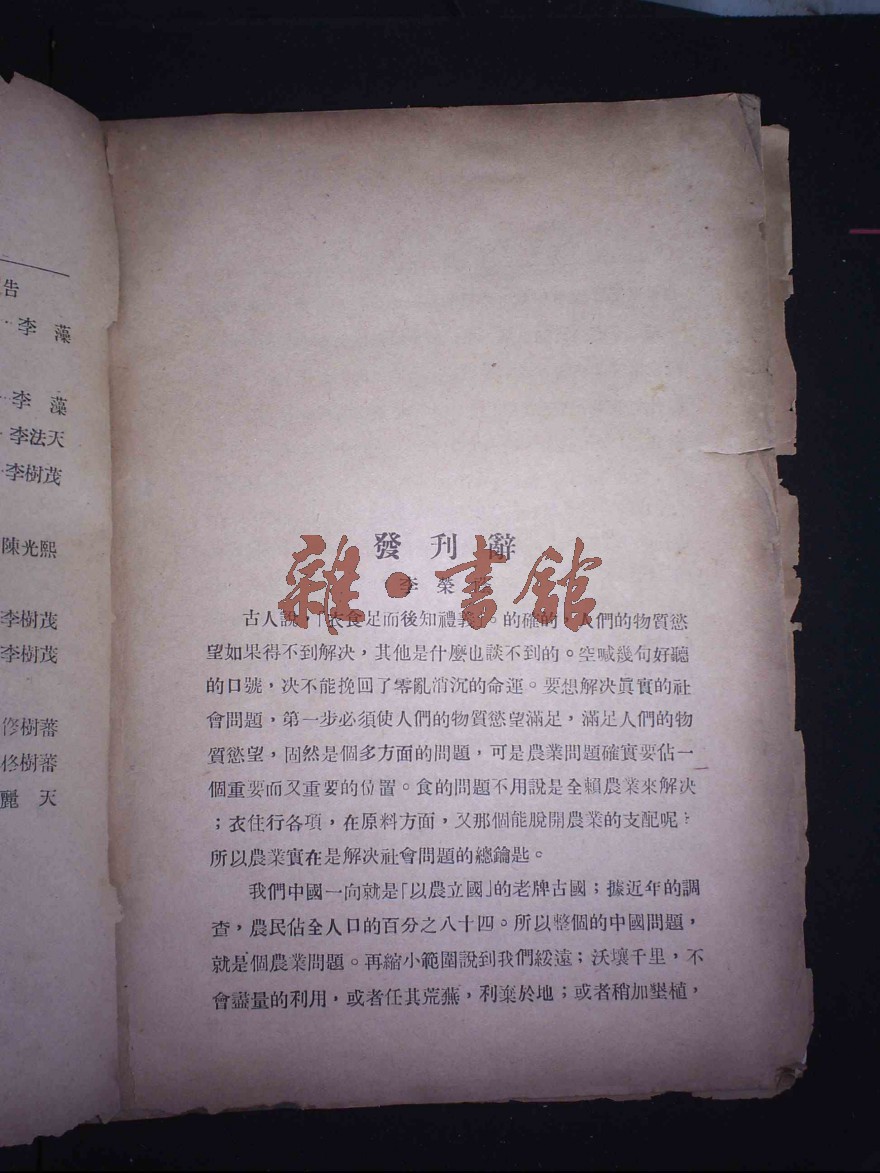 告
李 藻
李 藻
李法天
李樹茂
陳光熙
李樹茂
李樹茂
佟樹蕃
佟樹蕃
麗 天
發刊辭
李榮
雜·書館
古人說,「衣食足而後知禮義」。的確的,人們的物質慾
望如果得不到解決,其他是什麼也談不到的。空喊幾句好聽
的口號,决不能挽回了零亂消沉的命運。要想解决眞實的社
會問題,第一步必須使人們的物質慾望滿足,滿足人們的物
質慾望,固然是個多方面的問題,可是農業問題確實要佔一
個重要而又重要的位置。食的問題不用說是全賴農業來解决
;衣住行各項,在原料方面,又那個能脫開農業的支配呢?
所以農業實在是解决社會問題的總鑰匙。
我們中國一向就是「以農立國」的老牌古國;據近年的調
查,農民佔全人口的百分之八十四。所以整個的中國問題,
就是個農業問題。再縮小範圍說到我們綏遠;沃壤千里,不
會盡量的利用,或者任其荒蕪,利棄於地;或者稍加墾植,